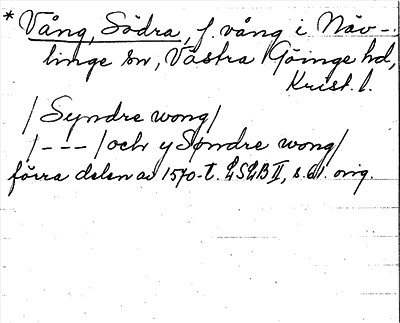 * Vång, Södra, f. vång i Näv-
linge sn, Västra Göinge hd,
Krist. l.
/ Syndre wong/
/ - - - /och y Søndre wong/
förra delen av 1570-t. LSLB II, s. 61. orig.